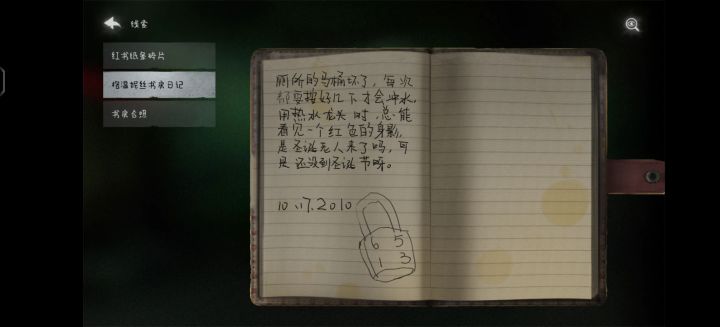 线索
红书纸条碎片
格温妮丝书房日记
书房合照
厕所的马桶坏了，每次
都要按好几下才会冲水，
用热水龙头时，总能
看见一个红色的身影，
是圣诞老人来了吗，可
是还没到圣诞节呀。
10.17.2010
6 5
1 3